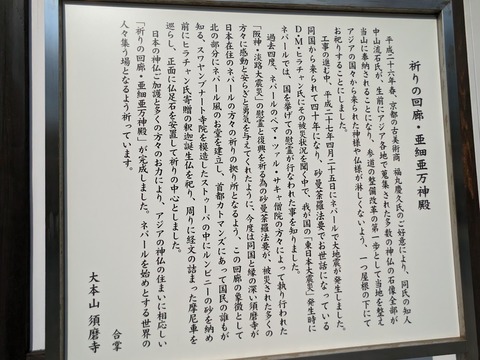 祈りの回廊・亜細亜万神殿
平成二十六年春、京都の古美術商 福丸慶久氏のご好意により、同氏の知人
中山流石氏が、生前にアジア各地で蒐集された多数の神仏の石像全部が
当山に奉納されることになり、参道の整備改革の第一歩として当地を整え
アジアの国々から来られた神様や仏様が淋しくないよう、一つ屋根の下にて
お祀りすることにしました。
工事の進む中、平成二十七年四月二十五日にネパールで大地震が発生しました。
同国から来られて四十年になり、砂曼荼羅法要でお世話になっている
D・M・ヒラチャン氏にその被災状況を聞く中で、我が国の「東日本大震災」発生時に
ネパールでは、国を挙げての慰霊が行なわれた事を知りました。
過去四度、ネパールのペマ・ツァル・サキャ僧院の方々によって執り行われた
「阪神・淡路大震災」の慰霊と復興を祈る為の砂曼荼羅法要が、被災された多くの
方々に感動と安らぎと勇気を与えてくれたように、今度は同国と縁の深い須磨寺が
日本在住のネパールの方々の祈りの拠り所となるよう、この回廊の象徴として
北の部分にネパール風のお堂を建立し、首都カトマンズにあって国民の誰もが
知る、スワヤンブナート寺院を模造したストゥーパの中にルンビニーの砂を納め
前にヒラチャン氏寄贈の釈迦誕生仏を祀り、周りに経文の詰まった摩尼車を
巡らし、正面に仏足石を安置して祈りの中心としました。
日本の神仏ご加護と多くの方々のお力により、アジアの神仏の住まいに相応しい
「祈りの回廊・亜細亜万神殿」が完成しました。ネパールを始めとする世界の
人々集う場となるよう祈っています。
合掌
大本山 須磨寺